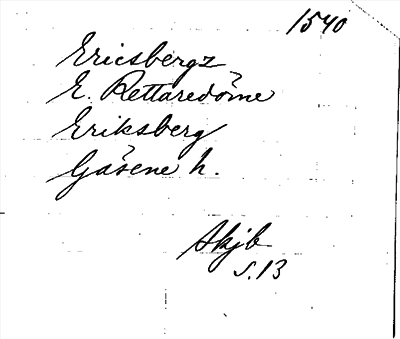 1540
Ericsbergz
E. Rettaredöme
Eriksberg
Gäsene h.
Skjb
s. 13